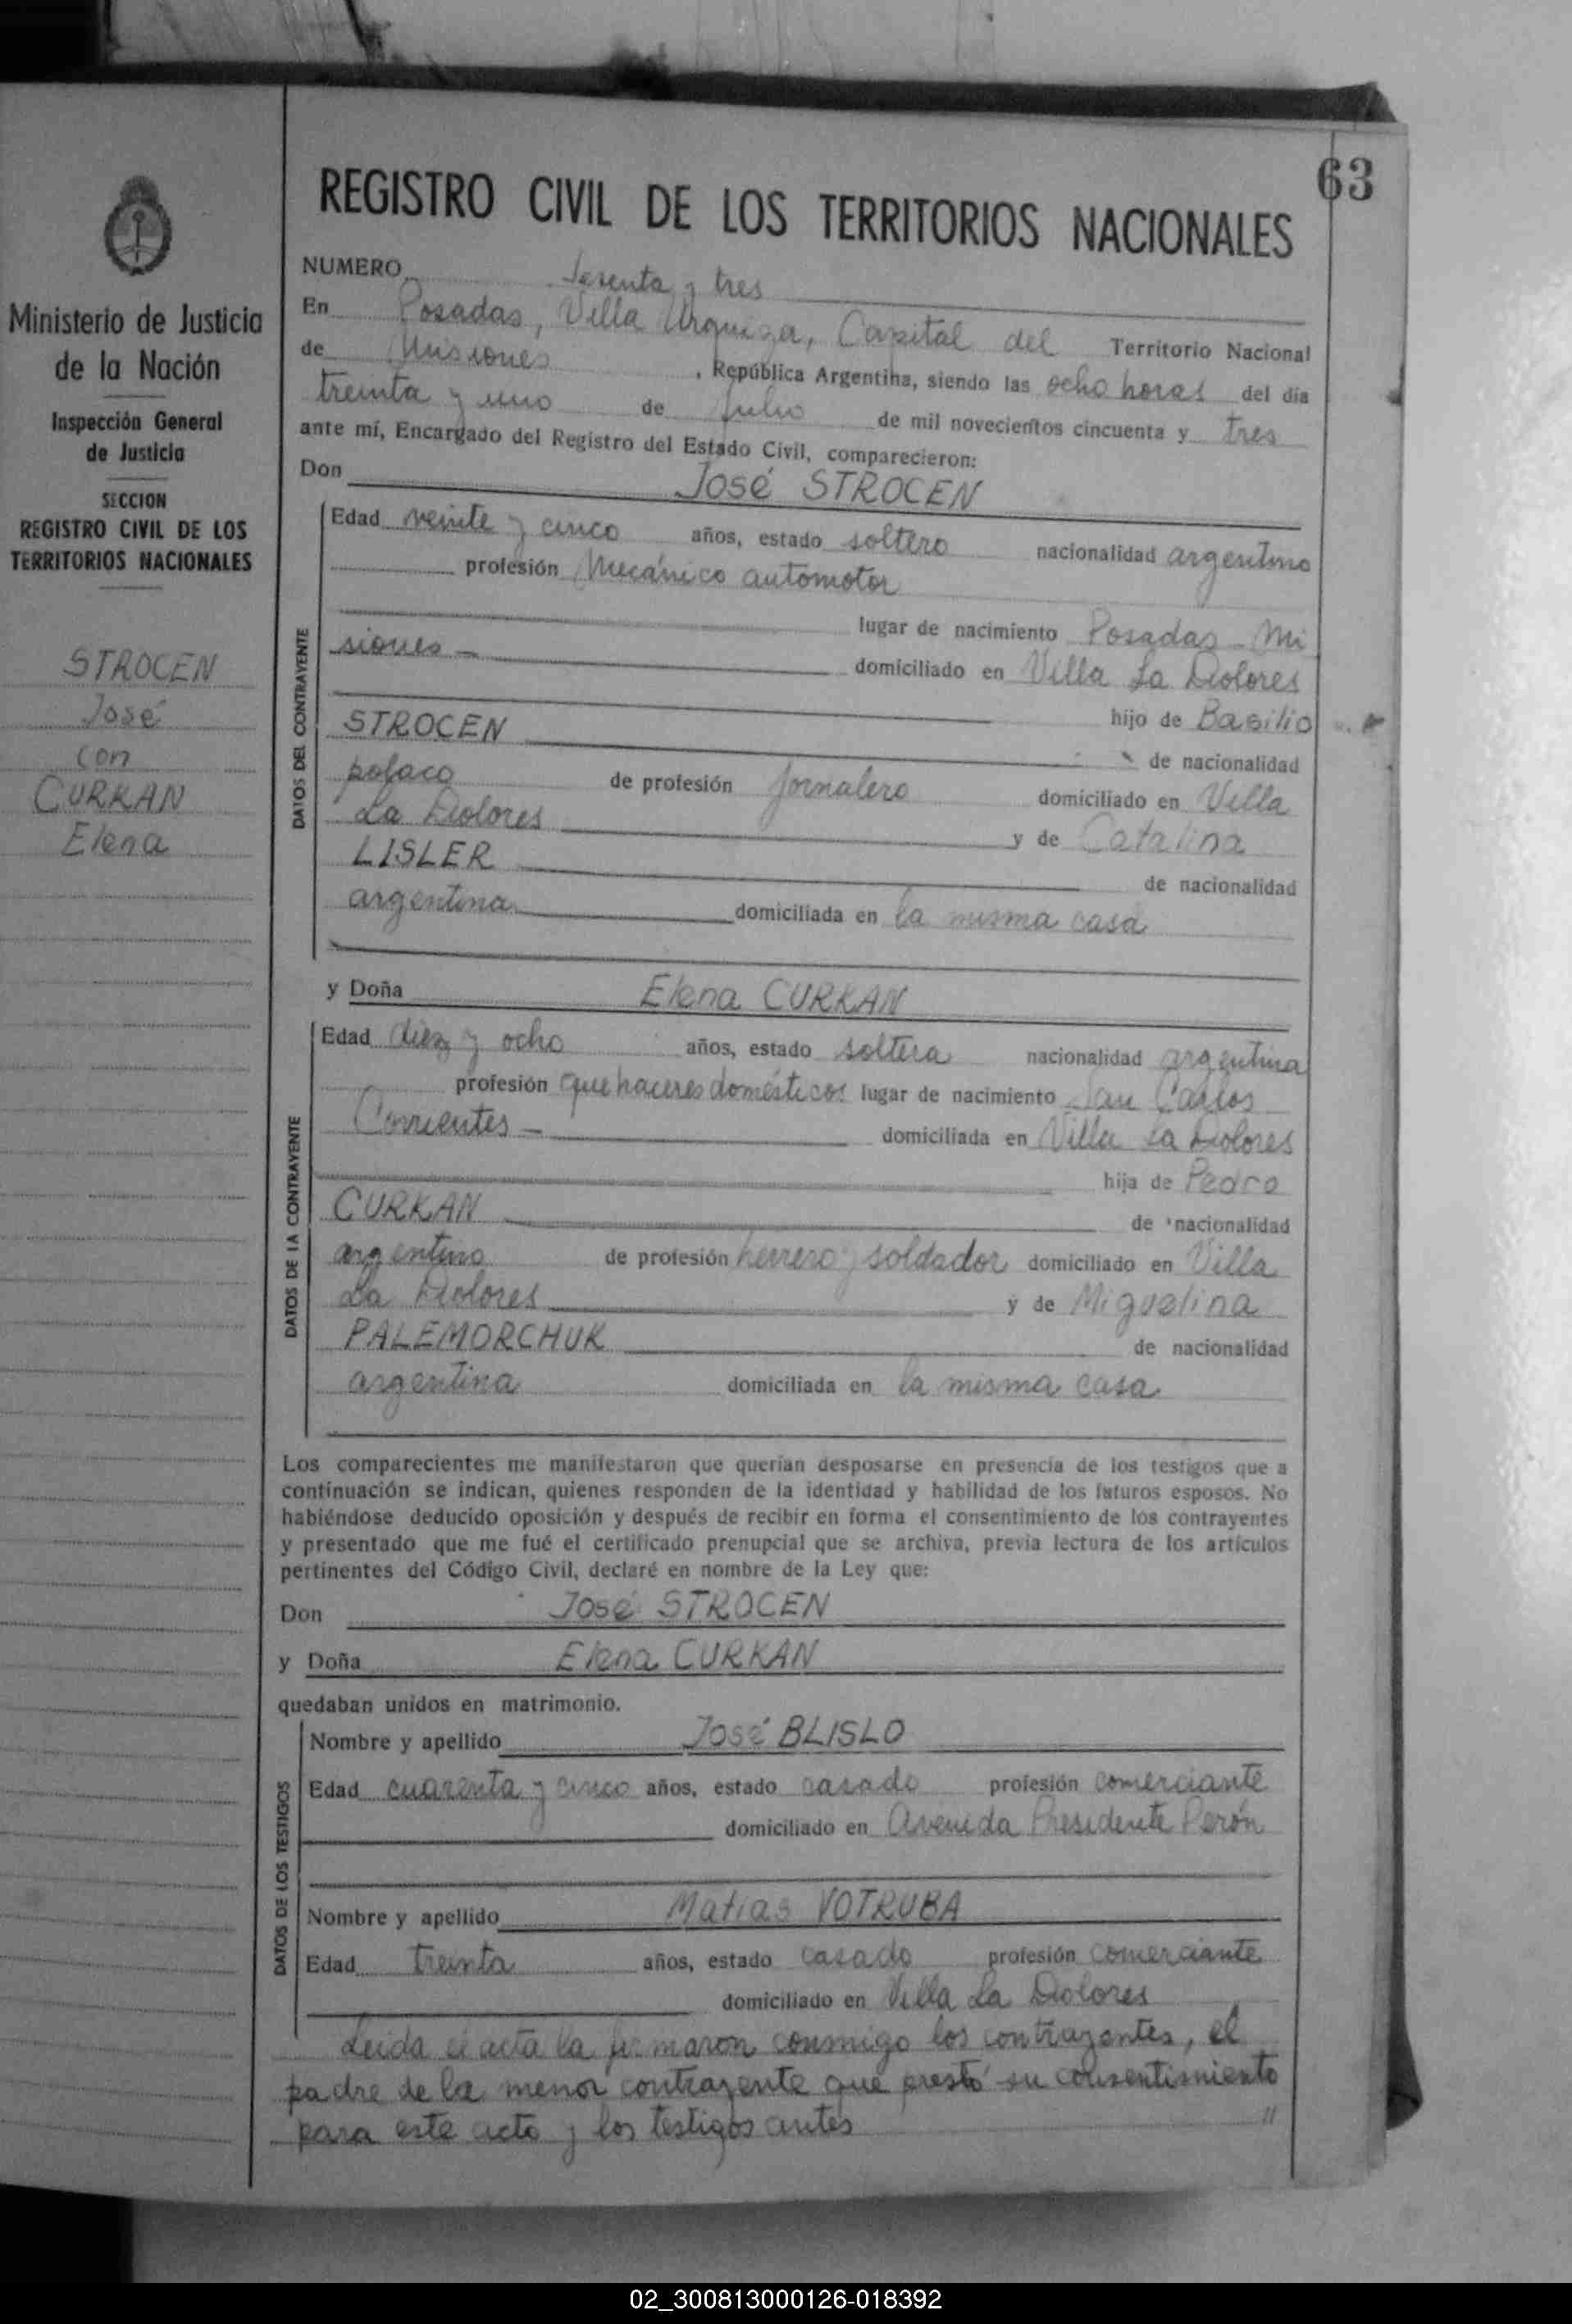 63
REGISTRO CIVIL DE LOS TERRITORIOS NACIONALES
Ministerio de Justicia
de la Nación
Inspección General
de Justicia
SECCION
REGISTRO CIVIL DE LOS
TERRITORIOS NACIONALES
STROCEN
José
con
CURKAN
Elena
NUMERO Sesenta y tres
En Posadas, Villa Urquiza, Capital del Territorio Nacional
de Misiones, República Argentina, siendo las ocho horas del día
treinta y uno de Julio de mil novecientos cincuenta y tres
ante mí, Encargado del Registro del Estado Civil, comparecieron:
Don José STROCEN
DATOS DEL CONTRAYENTE
Edad veinte y cinco años, estado soltero nacionalidad argentino
profesión Mecánico automotor
lugar de nacimiento Posadas - Mi
siones - domiciliado en Villa La Dolores
hijo de Basilio
STROCEN de nacionalidad
polaco de profesión jornalero domiciliado en Villa
La Dolores y de Catalina
LISLER de nacionalidad
argentina domiciliada en la misma casa
y Doña Elena CURKAN
DATOS DE LA CONTRAYENTE
Edad diez y ocho años, estado soltera nacionalidad argentina
profesión quehaceres domésticos lugar de nacimiento San Carlos
Corrientes - domiciliada en Villa La Dolores
hija de Pedro
CURKAN de nacionalidad
argentino de profesión herrero y soldador domiciliado en Villa
La Dolores y de Miguelina
PALEMORCHUK de nacionalidad
argentina domiciliada en la misma casa
Los comparecientes me manifestaron que querían desposarse en presencia de los testigos que a
continuación se indican, quienes responden de la identidad y habilidad de los futuros esposos. No
habiéndose deducido oposición y después de recibir en forma el consentimiento de los contrayentes
y presentado que me fué el certificado prenupcial que se archiva, previa lectura de los artículos
pertinentes del Código Civil, declaré en nombre de la Ley que:
Don José STROCEN
y Doña Elena CURKAN
quedaban unidos en matrimonio.
DATOS DE LOS TESTIGOS
Nombre y apellido José BLISLO
Edad cuarenta y cinco años, estado casado profesión comerciante
domiciliado en Avenida Presidente Perón
Nombre y apellido Matías VOTRUBA
Edad treinta años, estado casado profesión comerciante
domiciliado en Villa La Dolores
Leida el acta la firmaron conmigo los contrayentes, el
padre de la menor contrayente que prestó su consentimiento
para este acto y los testigos antes //
02_300813000126-018392